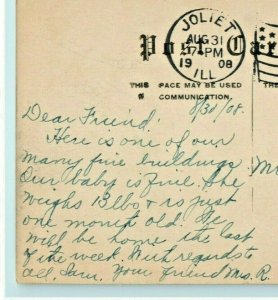 JOLIET
AUG 31
7 PM
1908
ILL
Post Ca
THIS SPACE MAY BE USED
COMMUNICATION.
8/30/08.
Dear Friend.
Here is one of our
many fine buildings. Mr
Our baby is fine. She
weighs 13 lbs & is just
one month old. We
will be home the last
of the week. With regards to
all, I am. Your friend Mrs. R.